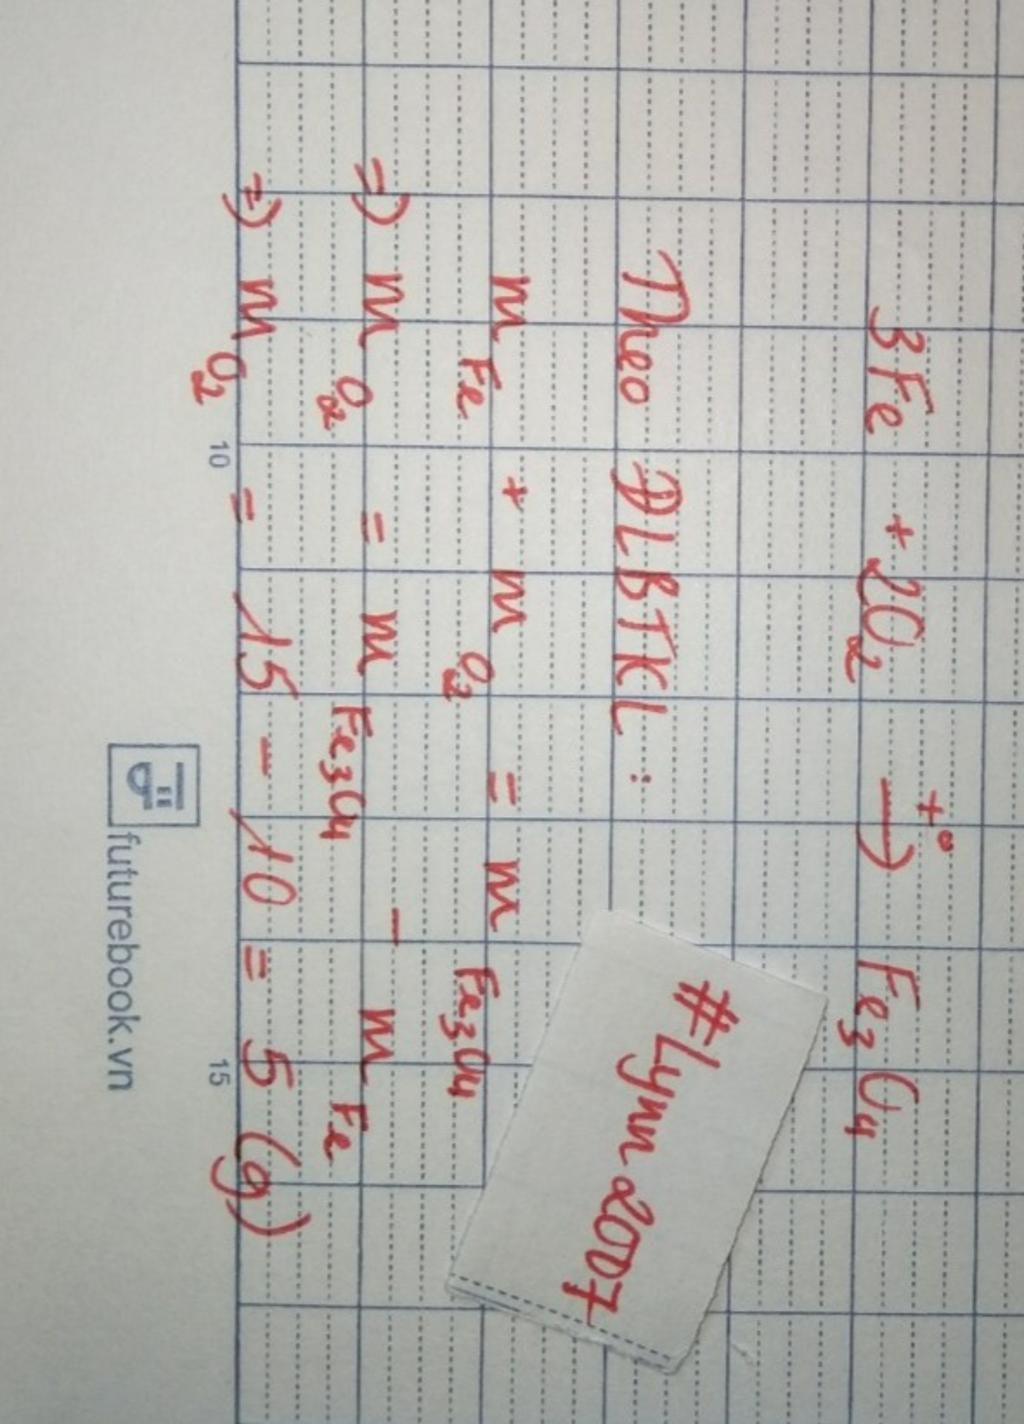 3Fe + 2O₂ —t°→ Fe₃O₄
Theo ĐLBTKL :
m Fe + m O₂ = m Fe₃O₄
=> m O₂ = m Fe₃O₄ - m Fe
=> m O₂ = 15 - 10 = 5 (g)
#Lynn2007
10
15
futurebook.vn